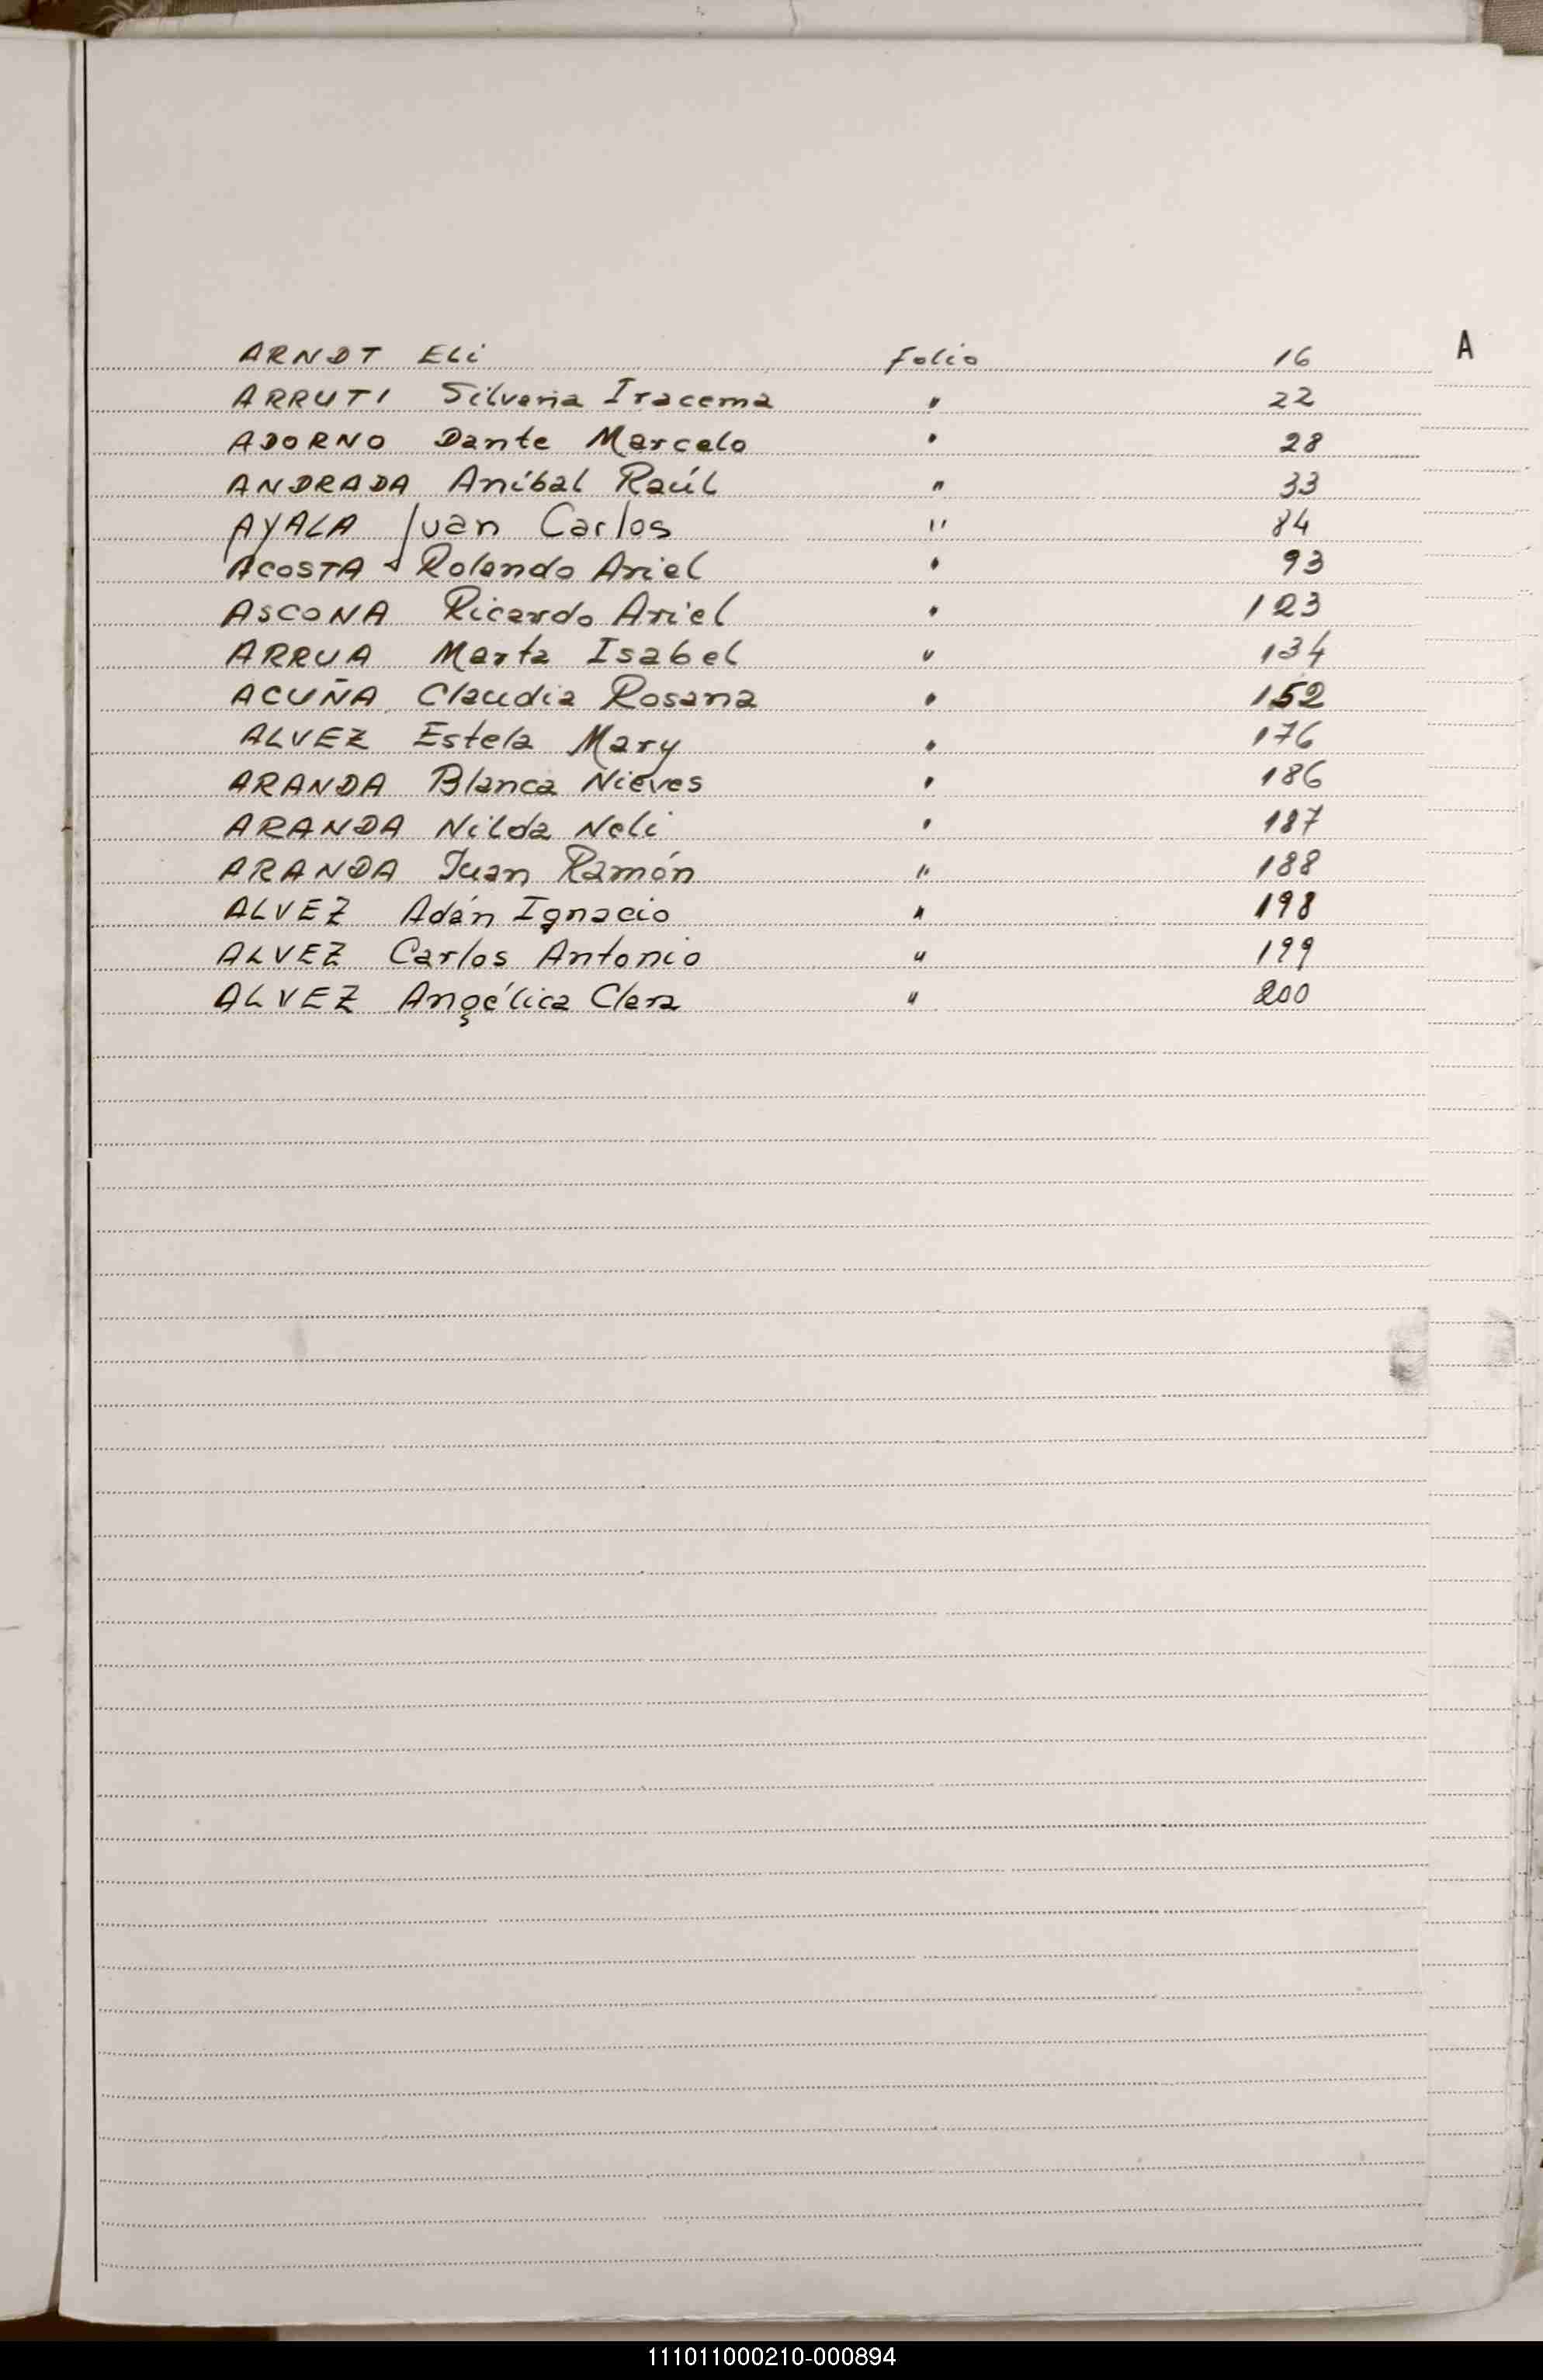 A
ARNDT Eli Folio 16
ARRUTI Silveria Iracema " 22
ADORNO Dante Marcelo " 28
ANDRADA Aníbal Raúl " 33
AYALA Juan Carlos " 84
ACOSTA Rolando Ariel " 93
ASCONA Ricardo Ariel " 123
ARRUA Marta Isabel " 134
ACUÑA Claudia Rosana " 152
ALVEZ Estela Mary " 176
ARANDA Blanca Nieves " 186
ARANDA Nilda Neli " 187
ARANDA Juan Ramón " 188
ALVEZ Adán Ignacio " 198
ALVEZ Carlos Antonio " 199
ALVEZ Angélica Clara " 200
111011000210-000894